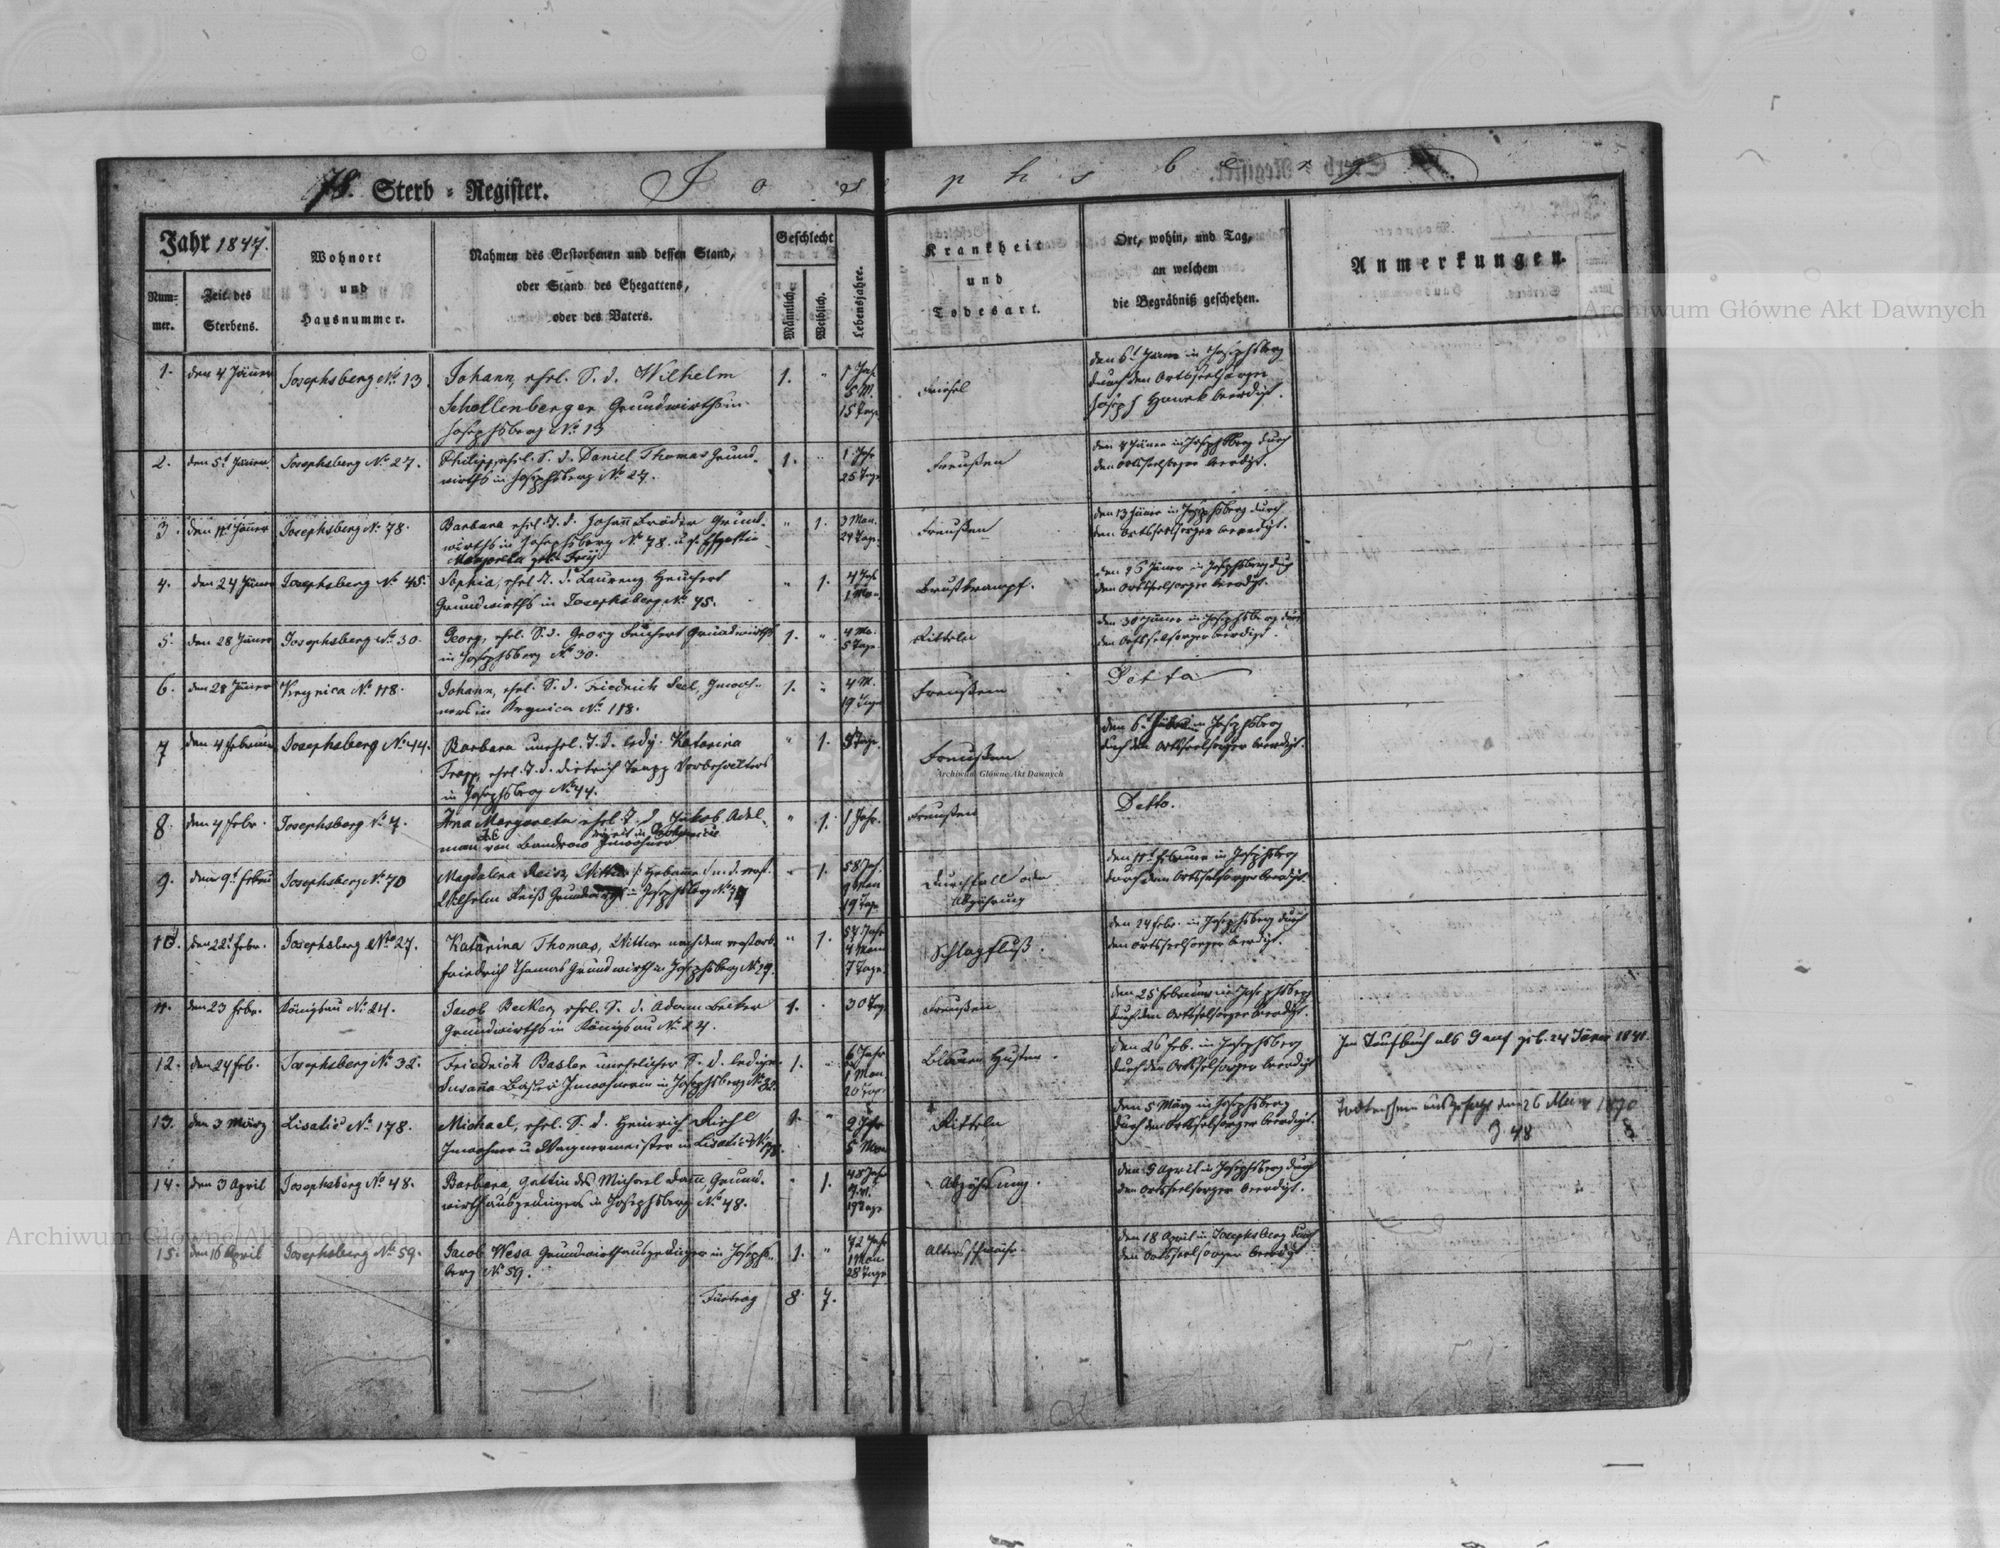 78. Sterb = Register. Josephsberg
Jahr 1847.
Num=
mer.
Zeit des
Sterbens.
Wohnort
und
Hausnummer.
Nahmen des Gestorbenen und dessen Stand,
oder Stand des Ehegattens,
oder des Vaters.
Geschlecht
Männlich.
Weiblich.
Lebensjahre.
Krankheit
und
Todesart.
Ort, wohin, und Tag,
an welchem
die Begräbniß geschehen.
Anmerkungen.
1. den 4 Jäner Josephsberg No 13. Johann, ehel. S. d. Wilhelm 1. " 1 Jahr
Schollenberger Grundwirths in 5 M.
Josephsberg No 13 15 Tage
Friesel
den 6t Jäner in Josephsberg
durch den Ortsseelsorger
Joseph Hanek beerdigt.
2. den 5t Jäner. Josephsberg No 27. Philipp, ehel. S. d. Daniel Thomas Grund- 1. " 1 Jahr
wirths in Josephsberg No 27. 25 Tage
Freußen
den 7 Jäner in Josephsberg durch
den Ortsseelsorger beerdigt.
3. den 11t Jäner Josephsberg No 78. Barbara ehel. T. d. Johann Bräder Grund- " 1. 3 Mon.
wirths in Josephsberg No 78. u. s. Ehegattin 24 Tage.
Margaretha geb. Frey
Freußen
den 13 Jäner in Josephsberg durch
den Ortsseelsorger beerdigt.
4. den 24 Jäner Josephsberg No 45. Sophia, ehel. T. d. Laurenz Heuchert " 1. 4 Jahr
Grundwirths in Josephsberg No 45. 1 Mon.
Brustkrampf.
den 26 Jäner in Josephsberg durch
den Ortsseelsorger beerdigt.
5. den 28 Jäner Josephsberg No 30. Georg, ehel. S. d. Georg Heuchert Grundwirths 1. " 4 Mo.
in Josephsberg No 30. 5 Tage
Ritteln
den 30 Jäner in Josephsberg durch
den Ortsseelsorger beerdigt.
6. den 28 Jäner Krynica No 118. Johann, ehel. S. d. Friedrich Seel, Inwoh- 1. " 4 M.
ners in Krynica No 118. 19 Tage
Freußen
Detto
7 den 4 Februar Josephsberg No 44. Barbara unehel. T. d. ledig. Katarina " 1. 8 Tage.
Trapp, ehel. T. d. Dietrich Trapp Vorbehalters
in Josephsberg No 44.
Freußen
den 6t in Josephsberg
durch den Ortsseelsorger beerdigt.
8. den 4 Febr. Josephsberg No 7. Ana Margaretha ehel. T. d. Jakob Adel- " 1. 1 Jahr.
man von Bandrow Inwohner
Freußen
Detto.
9. den 9t Febru Josephsberg No 70 Magdalena Reiß, Wittwe /: Hebame :/ n. d. verst. " 1. 58 Jah.
Wilhelm Reiß Grundwirth in Josephsberg No 70 9 Mon
19 Tage
Durchfall oder
Abzehrung
den 11t Februar in Josephsberg
durch den Ortsseelsorger beerdigt.
10. den 22t Febr. Josephsberg No 27. Katarina Thomas, Wittwe nach dem verstorb. " 1. 57 Jahr
Friedrich Thomas Grundwirth in Josephsberg No 29. 4 Mon
7 Tage.
Schlagfluß.
den 24 Febr. in Josephsberg durch
den Ortsseelsorger beerdigt.
11. den 23 Febr. Königsau No 24. Jacob Becker, ehel. S. d. Adam Becker 1. " 30 Tag.
Grundwirths in Königsau No 24.
Freußen
den 25 Februar in Josephsberg
durch den Ortsseelsorger beerdigt.
12. den 24 Feb. Josephsberg No 32. Friedrich Basler unehelicher S. d. ledigen 1. " 6 Jahr
Susaña Basler Inwohnerin in Josephsberg No 32. 1 Mon.
20 Tage
Blauen Husten.
den 26 Feb. in Josephsberg
durch den Ortsseelsorger beerdigt
Im Taufbuch als Gauf geb. 24 Jäner 1841.
13. den 3 März Lisatic No 178. Michael, ehel. S. d. Heinrich Riehl 1. " 2 Jahr
Inwohner u. Wagnermeister in Lisatic No 178. 5 Mon
Ritteln
den 5 März in Josephsberg
durch den Ortsseelsorger beerdigt.
Todtenschein ausgefolgt den 26 März 1870
Z 48
14. den 3 April Josephsberg No 48. Barbara, Gattin des Michael Dam Grund- " 1. 48 Jahr
wirthausgedingers in Josephsberg No 48. 9 M.
19 Tage
Abzehrung.
den 5 April in Josephsberg durch
den Ortsseelsorger beerdigt.
15. den 16 April Josephsberg No 59. Jacob Wesa Grundwirthausgedinger in Josephs- 1. " 72 Jahr
berg No 59. 1 Mon
28 Tage
Altersschwäche.
den 18 April in Josephsberg durch
den Ortsseelsorger beerdigt
Fürtrag 8 7.
Archiwum Główne Akt Dawnych
Archiwum Główne Akt Dawnych
Archiwum Główne Akt Dawnych